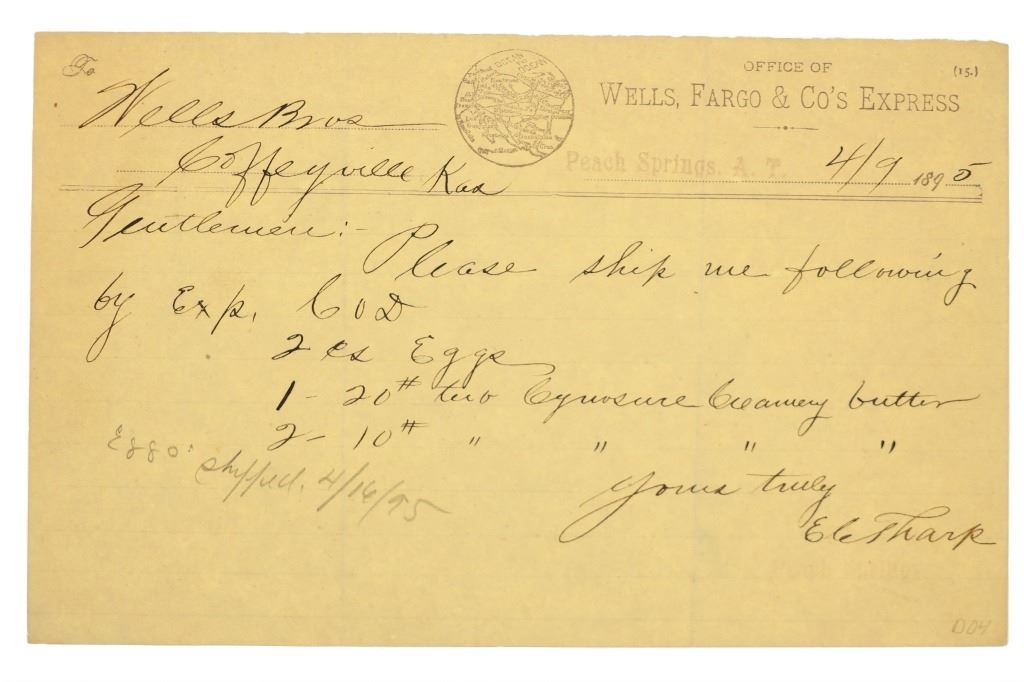 OFFICE OF (15.)
WELLS, FARGO & CO'S EXPRESS
OCEAN TO OCEAN
Peach Springs, A. T. 4/9 1895
To
Wells Bros
Coffeyville Kas
Gentlemen:-
Please ship me following
by Exp. COD
2 cs Eggs
1 - 20# two Cynosure Creamery butter
2 - 10# " " " "
Eggs shipped. 4/16/95
Yours truly
E C Tharp
Peach Springs
D04